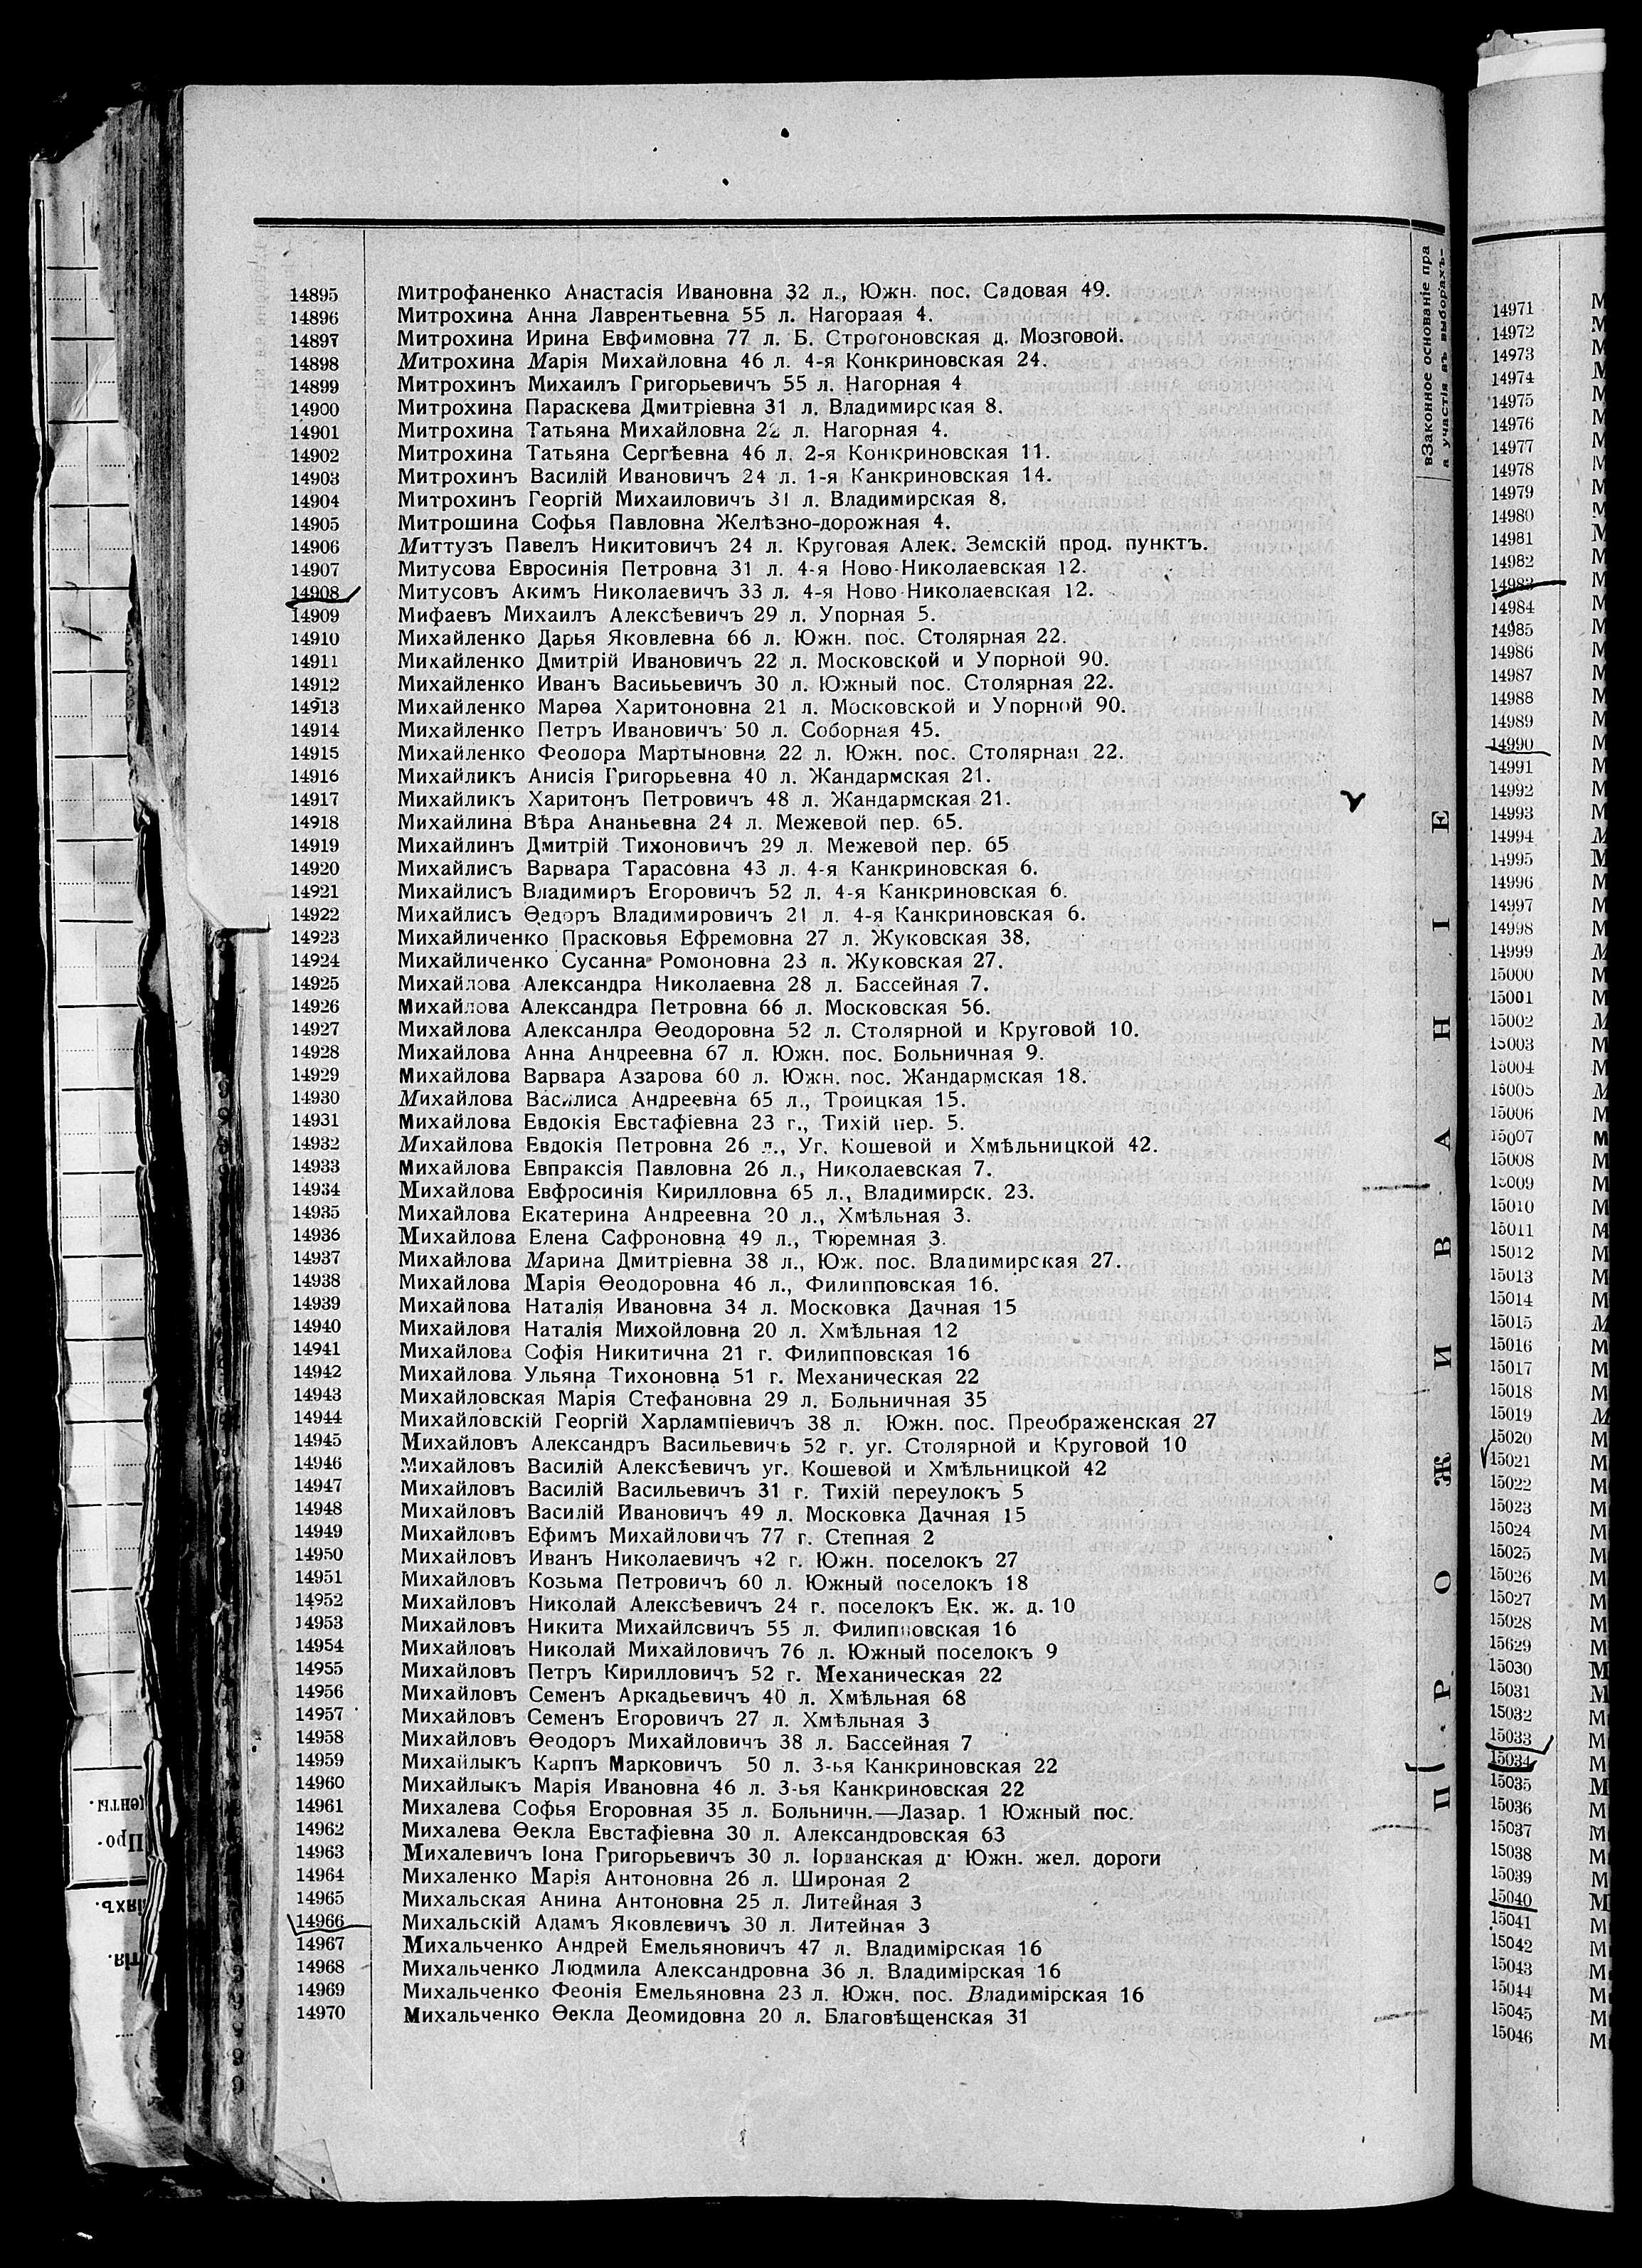 вЗаконное основаніе пра
а участія въ выборахъ-
ПРОЖИВАНІЕ
14895 Митрофаненко Анастасія Ивановна 32 л., Южн. пос. Садовая 49.
14896 Митрохина Анна Лаврентьевна 55 л. Нагораая 4.
14897 Митрохина Ирина Евфимовна 77 л. Б. Строгоновская д. Мозговой.
14898 Митрохина Марія Михайловна 46 л. 4-я Конкриновская 24.
14899 Митрохинъ Михаилъ Григорьевичъ 55 л. Нагорная 4
14900 Митрохина Параскева Дмитріевна 31 л. Владимирская 8.
14901 Митрохина Татьяна Михайловна 22 л. Нагорная 4.
14902 Митрохина Татьяна Сергѣевна 46 л. 2-я Конкриновская 11.
14903 Митрохинъ Василій Ивановичъ 24 л. 1-я Канкриновская 14.
14904 Митрохинъ Георгій Михаиловичъ 31 л. Владимирская 8.
14905 Митрошина Софья Павловна Желѣзно-дорожная 4.
14906 Миттузъ Павелъ Никитовичъ 24 л. Круговая Алек. Земскій прод. пунктъ.
14907 Митусова Евросинія Петровна 31 л. 4-я Ново-Николаевская 12.
14908 Митусовъ Акимъ Николаевичъ 33 л. 4-я Ново-Николаевская 12.
14909 Мифаевъ Михаилъ Алексѣевичъ 29 л. Упорная 5.
14910 Михайленко Дарья Яковлевна 66 л. Южн. пос. Столярная 22.
14911 Михайленко Дмитрій Ивановичъ 22 л. Московской и Упорной 90.
14912 Михайленко Иванъ Васиььевичъ 30 л. Южный пос. Столярная 22.
14913 Михайленко Марѳа Харитоновна 21 л. Московской и Упорной 90.
14914 Михайленко Петръ Ивановичъ 50 л. Соборная 45.
14915 Михайленко Феодора Мартыновна 22 л. Южн. пос. Столярная 22.
14916 Михайликъ Анисія Григорьевна 40 л. Жандармская 21.
14917 Михайликъ Харитонъ Петровичъ 48 л. Жандармская 21.
14918 Михайлина Вѣра Ананьевна 24 л. Межевой пер. 65.
14919 Михайлинъ Дмитрій Тихоновичъ 29 л. Межевой пер. 65
14920 Михайлисъ Варвара Тарасовна 43 л. 4-я Канкриновская 6.
14921 Михайлисъ Владимиръ Егоровичъ 52 л. 4-я Канкриновская 6.
14922 Михайлисъ Ѳедоръ Владимировичъ 21 л. 4-я Канкриновская 6.
14923 Михайличенко Прасковья Ефремовна 27 л. Жуковская 38.
14924 Михайличенко Сусанна Ромоновна 23 л. Жуковская 27.
14925 Михайлова Александра Николаевна 28 л. Бассейная 7.
14926 Михайлова Александра Петровна 66 л. Московская 56.
14927 Михайлова Александра Ѳеодоровна 52 л. Столярной и Круговой 10.
14928 Михайлова Анна Андреевна 67 л. Южн. пос. Больничная 9.
14929 Михайлова Варвара Азарова 60 л. Южн. пос. Жандармская 18.
14930 Михайлова Василиса Андреевна 65 л., Троицкая 15.
14931 Михайлова Евдокія Евстафіевна 23 г., Тихій пер. 5.
14932 Михайлова Евдокія Петровна 26 л., Уг. Кошевой и Хмѣльницкой 42.
14933 Михайлова Евпраксія Павловна 26 л., Николаевская 7.
14934 Михайлова Евфросинія Кирилловна 65 л., Владимирск. 23.
14935 Михайлова Екатерина Андреевна 20 л., Хмѣльная 3.
14936 Михайлова Елена Сафроновна 49 л., Тюремная 3.
14937 Михайлова Марина Дмитріевна 38 л., Юж. пос. Владимирская 27.
14938 Михайлова Марія Ѳеодоровна 46 л., Филипповская 16.
14939 Михайлова Наталія Ивановна 34 л. Московка Дачная 15
14940 Михайлова Наталія Михойловна 20 л. Хмѣльная 12
14941 Михайлова Софія Никитична 21 г. Филипповская 16
14942 Михайлова Ульяна Тихоновна 51 г. Механическая 22
14943 Михайловская Марія Стефановна 29 л. Больничная 35
14944 Михайловскій Георгій Харлампіевичъ 38 л. Южн. пос. Преображенская 27
14945 Михайловъ Александръ Васильевичъ 52 г. уг. Столярной и Круговой 10
14946 Михайловъ Василій Алексѣевичъ уг. Кошевой и Хмѣльницкой 42
14947 Михайловъ Василій Васильевичъ 31 г. Тихій переулокъ 5
14948 Михайловъ Василій Ивановичъ 49 л. Московка Дачная 15
14949 Михайловъ Ефимъ Михайловичъ 77 г. Степная 2
14950 Михайловъ Иванъ Николаевичъ 42 г. Южн. поселокъ 27
14951 Михайловъ Козьма Петровичъ 60 л. Южный поселокъ 18
14952 Михайловъ Николай Алексѣевичъ 24 г. поселокъ Ек. ж. д. 10
14953 Михайловъ Никита Михайловичъ 55 л. Филипповская 16
14954 Михайловъ Николай Михайловичъ 76 л. Южный поселокъ 9
14955 Михайловъ Петръ Кирилловичъ 52 г. Механическая 22
14956 Михайловъ Семенъ Аркадьевичъ 40 л. Хмѣльная 68
14957 Михайловъ Семенъ Егоровичъ 27 л. Хмѣльная 3
14958 Михайловъ Ѳеодоръ Михайловичъ 38 л. Бассейная 7
14959 Михайлыкъ Карпъ Марковичъ 50 л. 3-ья Канкриновская 22
14960 Михайлыкъ Марія Ивановна 46 л. 3-ья Канкриновская 22
14961 Михалева Софья Егоровная 35 л. Больничн.—Лазар. 1 Южный пос.
14962 Михалева Ѳекла Евстафіевна 30 л. Александровская 63
14963 Михалевичъ Іона Григорьевичъ 30 л. Іорданская д. Южн. жел. дороги
14964 Михаленко Марія Антоновна 26 л. Широная 2
14965 Михальская Анина Антоновна 25 л. Литейная 3
14966 Михальскій Адамъ Яковлевичъ 30 л. Литейная 3
14967 Михальченко Андрей Емельяновичъ 47 л. Владимірская 16
14968 Михальченко Людмила Александровна 36 л. Владимірская 16
14969 Михальченко Феонія Емельяновна 23 л. Южн. пос. Владимірская 16
14970 Михальченко Ѳекла Деомидовна 20 л. Благовѣщенская 31
14971 М
14972 М
14973 М
14974 М
14975 М
14976 М
14977 М
14978 М
14979 М
14980 М
14981 М
14982 М
14983 М
14984 М
14985 М
14986 М
14987 М
14988 М
14989 М
14990 М
14991 М
14992 М
14993 М
14994 М
14995 М
14996 М
14997 М
14998 М
14999 М
15000 М
15001 М
15002 М
15003 М
15004 М
15005 М
15006 М
15007 М
15008 М
15009 М
15010 М
15011 М
15012 М
15013 М
15014 М
15015 М
15016 М
15017 М
15018 М
15019 М
15020 М
15021 М
15022 М
15023 М
15024 М
15025 М
15026 М
15027 М
15028 М
15629 М
15030 М
15031 М
15032 М
15033 М
15034 М
15035 М
15036 М
15037 М
15038 М
15039 М
15040 М
15041 М
15042 М
15043 М
15044 М
15045 М
15046 М